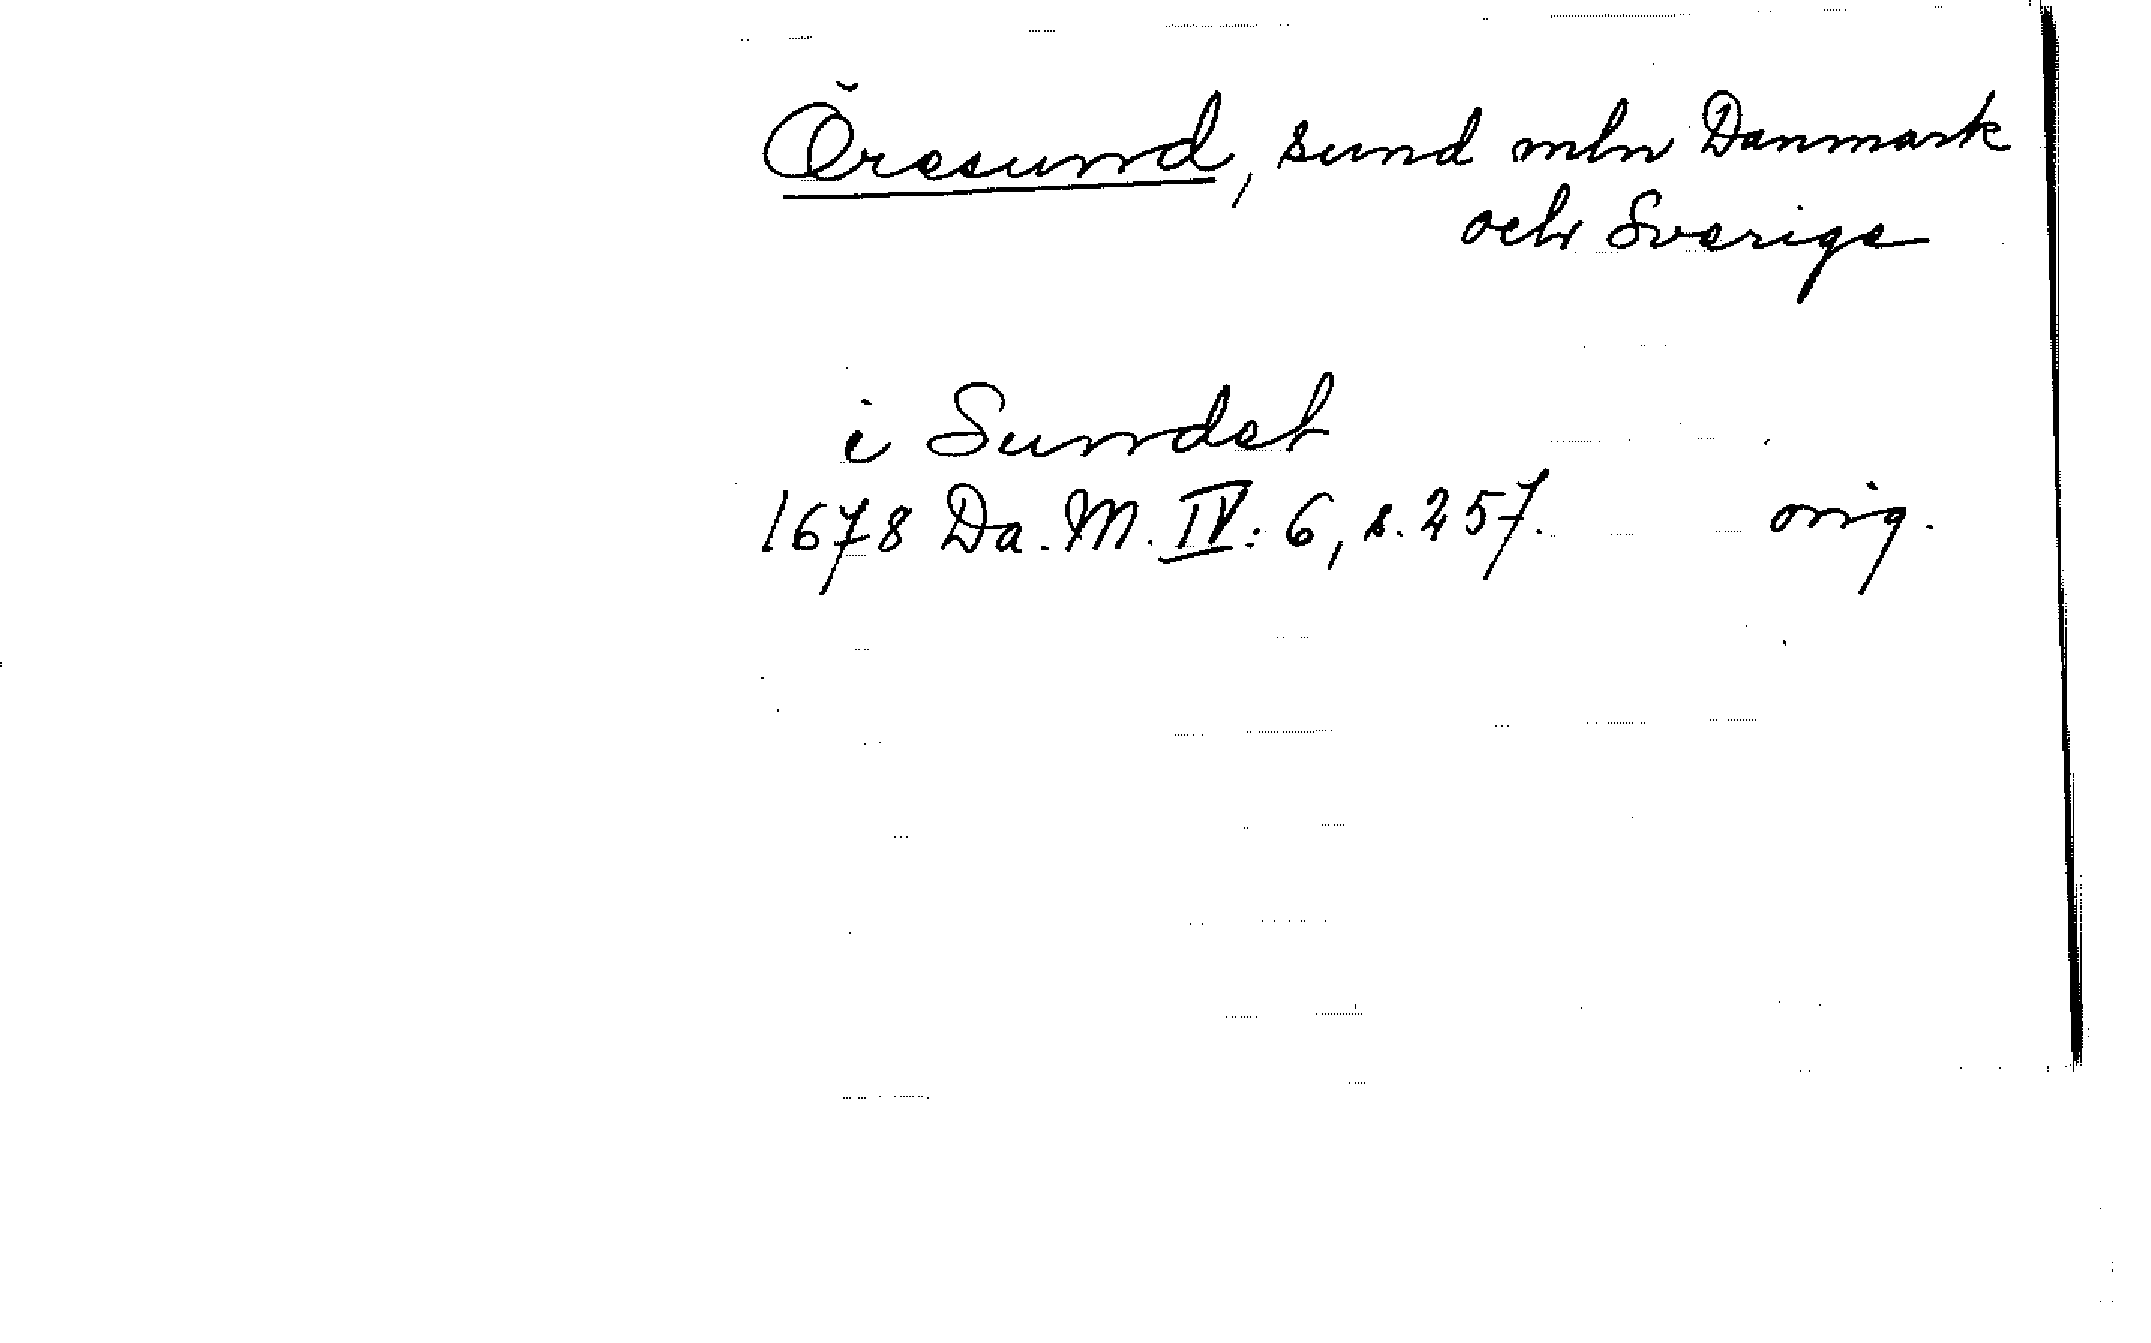 Öresund, sund mln Danmark
och Sverige
i Sundet
1678 Da. M. IV: 6, s. 257. orig.